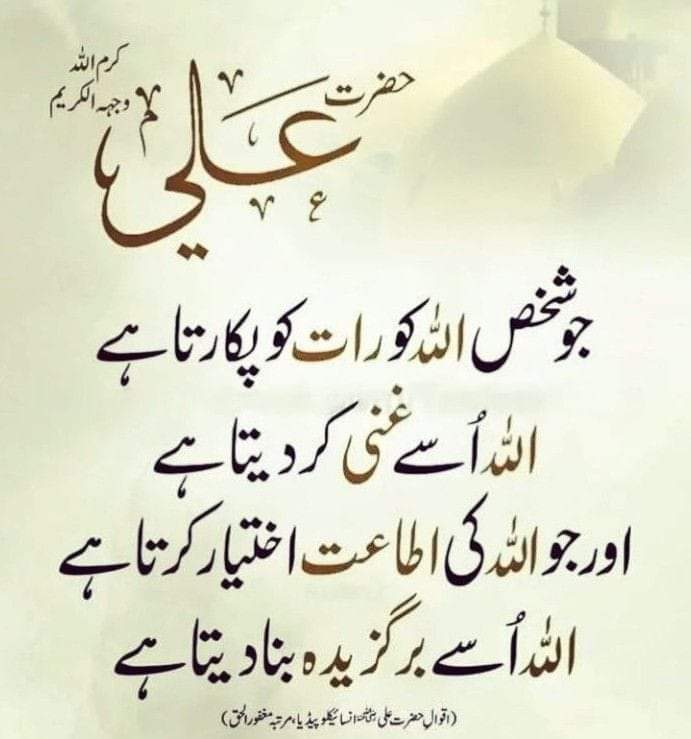 حضرت
علی
کرم اللہ
وجہہ الکریم
جو شخص اللہ کو رات کو پکارتا ہے
اللہ اُسے غنی کر دیتا ہے
اور جو اللہ کی اطاعت اختیار کرتا ہے
اللہ اُسے برگزیدہ بنا دیتا ہے
(اقوالِ حضرت علی انسائیکلوپیڈیا، مرتبہ مغفور الحق)